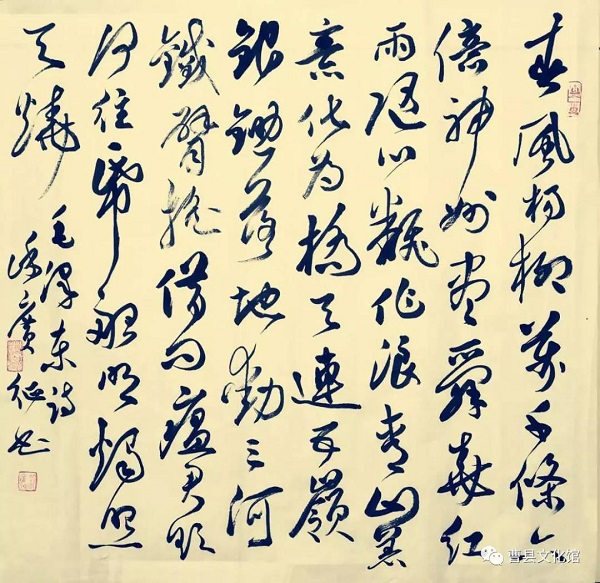 春風楊柳萬千條六
億神州盡舜堯紅
雨随心翻作浪青山着
意化为橋天連五嶺
銀鋤落地動三河
鐵臂摇借问瘟君欲
何往纸船明燭照
天燒
毛澤東詩
廣征书
曹县文化馆